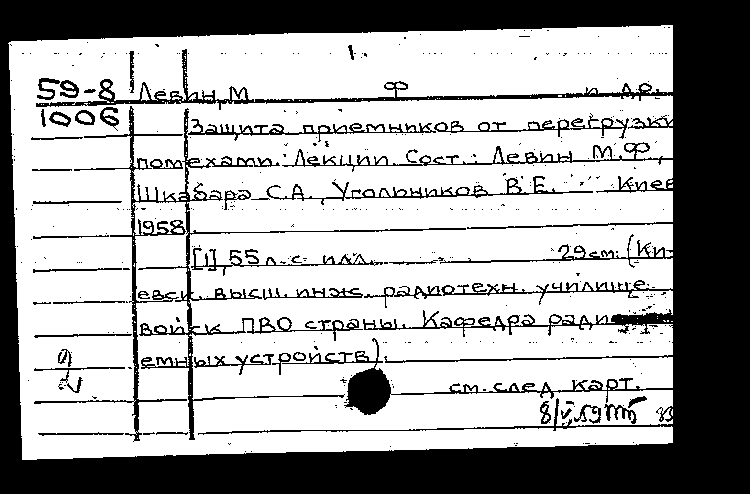 1.
59-8 Левин, М Ф и др.
1006 Защита приемников от перегрузки
помехами. Лекции. Сост.: Левин М.Ф.,
Шкабара С.А., Угольников В.Е. Киев
1958.
[1], 55 л. с илл. 29 см. (Ки-
евск. высш. инж. радиотехн. училище
войск ПВО страны. Кафедра ради
емных устройств).
см. след. карт.